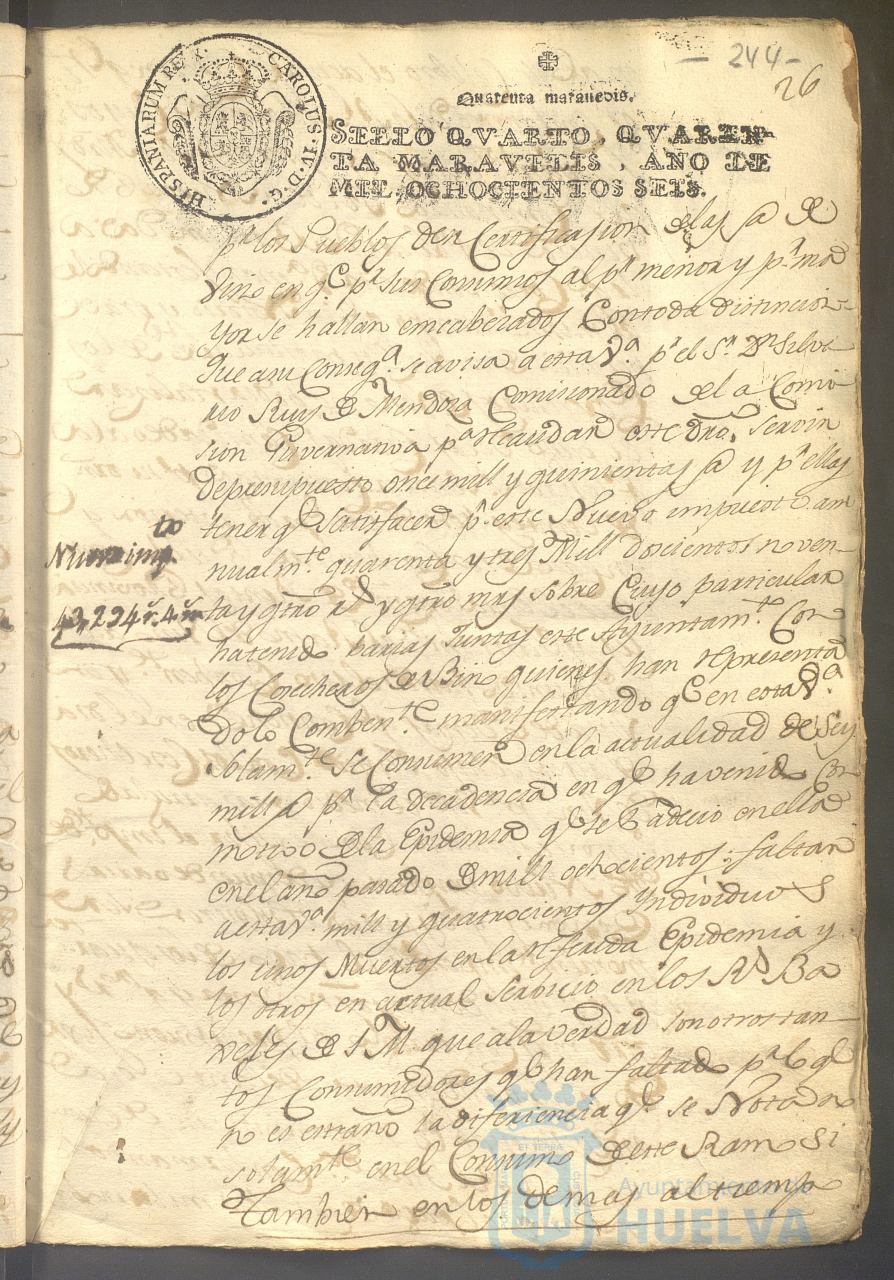 - 244 -
26
HISPANIARUM REX. CAROLUS. IV. D. G.
Quarenta maravedis.
SELLO QVARTO, QVAREN-
TA MARAVEDIS, AÑO DE
MIL OCHOCIENTOS SEIS.
pr. los Pueblos den Certificasion de las @ de
Vino en qe. pa. sus Consumos al pr. menor y pr. ma
yor se hallan encabezados Con toda distincion
que asu Conseqa. se avisa a esta Va. pr. el Sr. Dn. Silve
rio Ruis de Mendoza Comisionado de la Comi-
sion Guvernativa pa. recaudar este dro. servin
de presupuesto once mill y quinientas @ y pr. ellas
tener qe. satisfacer pr. este Nuevo impuesto an
nualmte. quarenta y tres Mill doscientos noven-
ta y qtro rs. y qtro mrs sobre Cuyo particular
ha tenido barias Juntas este Ayuntamto. Con
los Cosecheros de Bino quienes han representa
do lo Combente. manifestando qe. en esta Va.
solamte. se Consumen en la actualidad de seis
mill @ pr. la decadencia en qe. ha venido Con
motivo de la Epidemia qe. se Padecio en ella
en el año pasado de mill ochocientos; faltan
a esta Va. mill y quatrocientos Yndividuos
los unos Muertos en la referida Epidemia y
los otros en actual servicio en los Rs. Ba
xeles de S. M. que a la verdad son otros tan-
tos Consumidores qe. han faltado pr. lo qe.
no es estraño la diferiencia qe. se Nota no
solamte. en el Consumo de este Ramo si
tambien en los demas al tiempo
to
Nuevo imp.
43,294 r. 4 m
Ayuntamiento
HUELVA